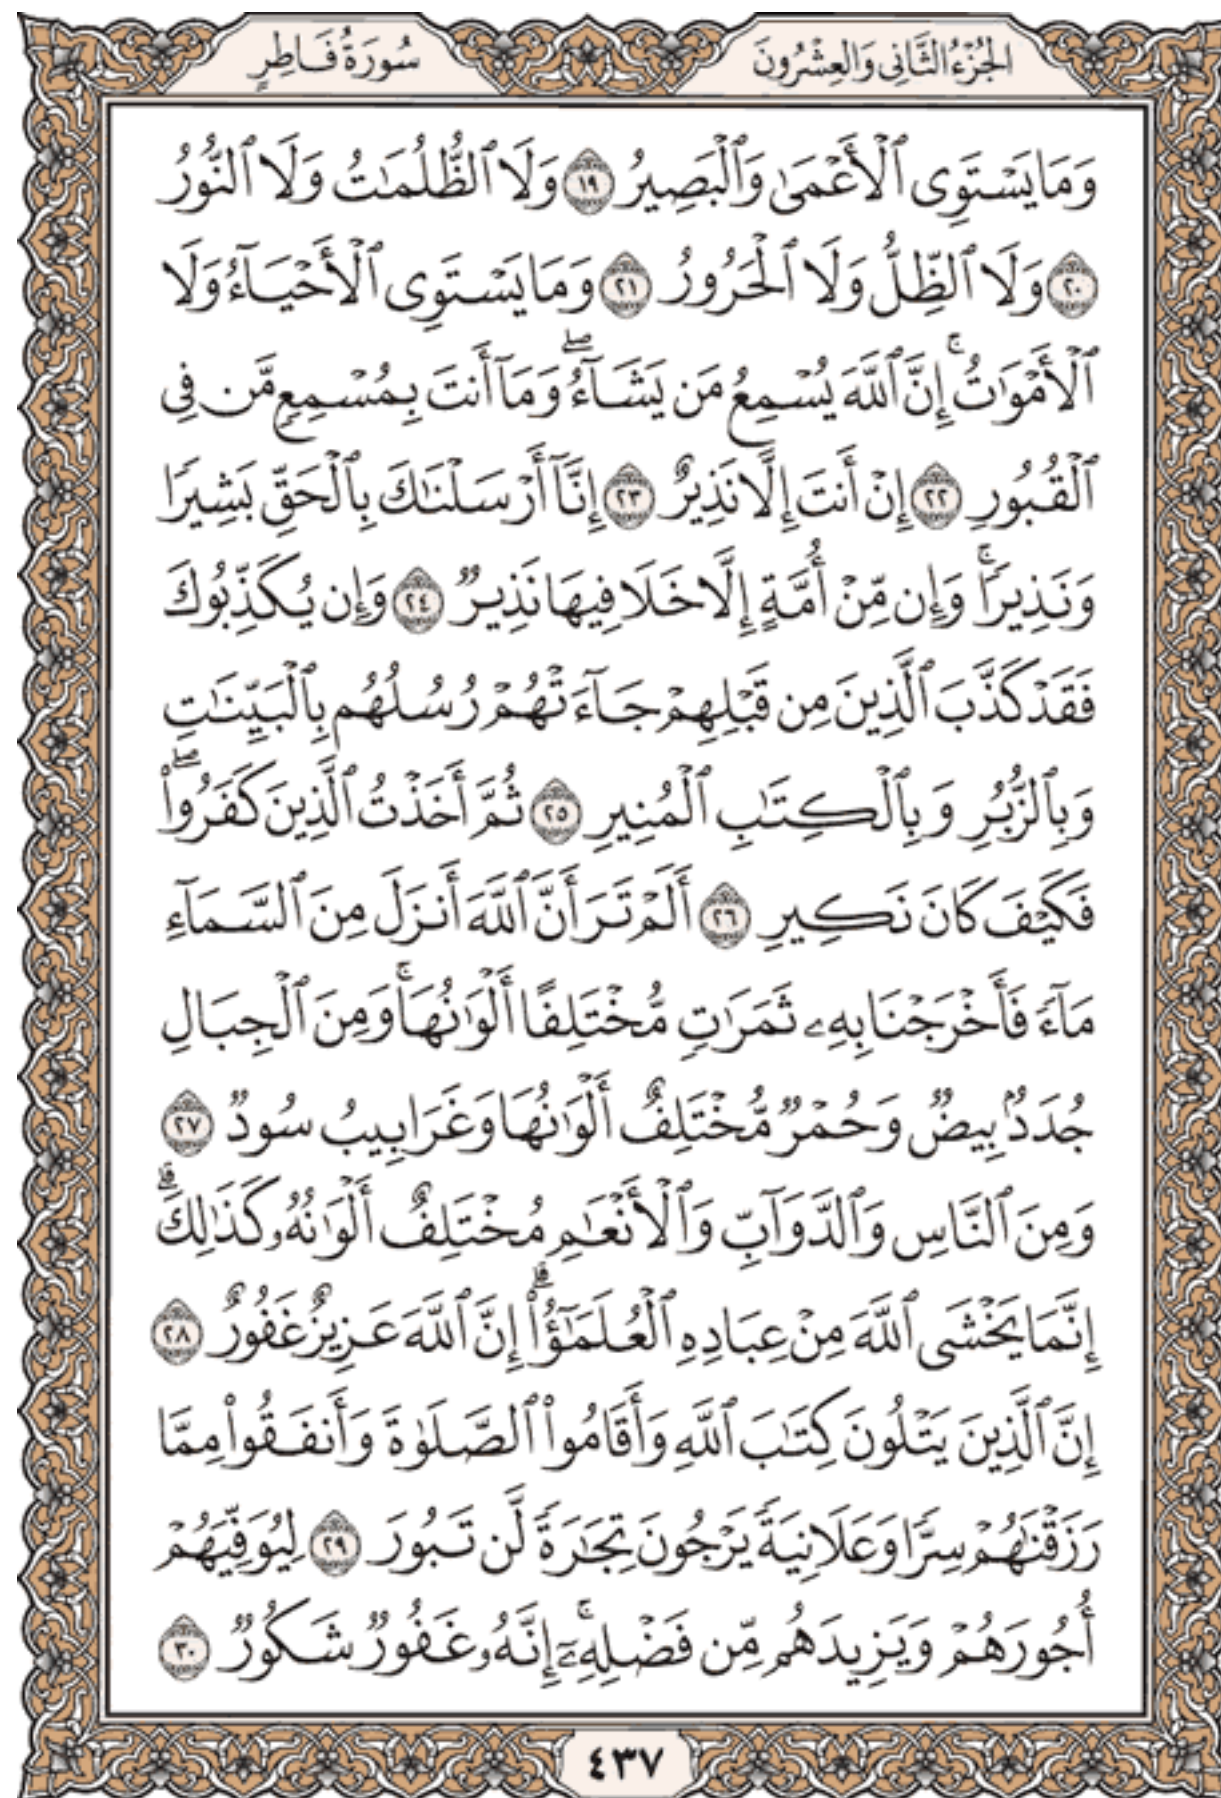 الجُزْءُ الثَّانِي وَالعِشْرُونَ
سُورَةُ فَاطِرٍ
وَمَا يَسْتَوِى ٱلْأَعْمَىٰ وَٱلْبَصِيرُ ١٩ وَلَا ٱلظُّلُمَٰتُ وَلَا ٱلنُّورُ
٢٠ وَلَا ٱلظِّلُّ وَلَا ٱلْحَرُورُ ٢١ وَمَا يَسْتَوِى ٱلْأَحْيَآءُ وَلَا
ٱلْأَمْوَٰتُ ۚ إِنَّ ٱللَّهَ يُسْمِعُ مَن يَشَآءُ ۖ وَمَآ أَنتَ بِمُسْمِعٍ مَّن فِى
ٱلْقُبُورِ ٢٢ إِنْ أَنتَ إِلَّا نَذِيرٌ ٢٣ إِنَّآ أَرْسَلْنَٰكَ بِٱلْحَقِّ بَشِيرًا
وَنَذِيرًا ۚ وَإِن مِّنْ أُمَّةٍ إِلَّا خَلَا فِيهَا نَذِيرٌ ٢٤ وَإِن يُكَذِّبُوكَ
فَقَدْ كَذَّبَ ٱلَّذِينَ مِن قَبْلِهِمْ جَآءَتْهُمْ رُسُلُهُم بِٱلْبَيِّنَٰتِ
وَبِٱلزُّبُرِ وَبِٱلْكِتَٰبِ ٱلْمُنِيرِ ٢٥ ثُمَّ أَخَذْتُ ٱلَّذِينَ كَفَرُوا۟ ۖ
فَكَيْفَ كَانَ نَكِيرِ ٢٦ أَلَمْ تَرَ أَنَّ ٱللَّهَ أَنزَلَ مِنَ ٱلسَّمَآءِ
مَآءً فَأَخْرَجْنَا بِهِۦ ثَمَرَٰتٍ مُّخْتَلِفًا أَلْوَٰنُهَا ۚ وَمِنَ ٱلْجِبَالِ
جُدَدٌۢ بِيضٌ وَحُمْرٌ مُّخْتَلِفٌ أَلْوَٰنُهَا وَغَرَابِيبُ سُودٌ ٢٧
وَمِنَ ٱلنَّاسِ وَٱلدَّوَآبِّ وَٱلْأَنْعَٰمِ مُخْتَلِفٌ أَلْوَٰنُهُۥ كَذَٰلِكَ ۗ
إِنَّمَا يَخْشَى ٱللَّهَ مِنْ عِبَادِهِ ٱلْعُلَمَٰٓؤُا۟ ۗ إِنَّ ٱللَّهَ عَزِيزٌ غَفُورٌ ٢٨
إِنَّ ٱلَّذِينَ يَتْلُونَ كِتَٰبَ ٱللَّهِ وَأَقَامُوا۟ ٱلصَّلَوٰةَ وَأَنفَقُوا۟ مِمَّا
رَزَقْنَٰهُمْ سِرًّا وَعَلَانِيَةً يَرْجُونَ تِجَٰرَةً لَّن تَبُورَ ٢٩ لِيُوَفِّيَهُمْ
أُجُورَهُمْ وَيَزِيدَهُم مِّن فَضْلِهِۦٓ ۚ إِنَّهُۥ غَفُورٌ شَكُورٌ ٣٠
٤٣٧